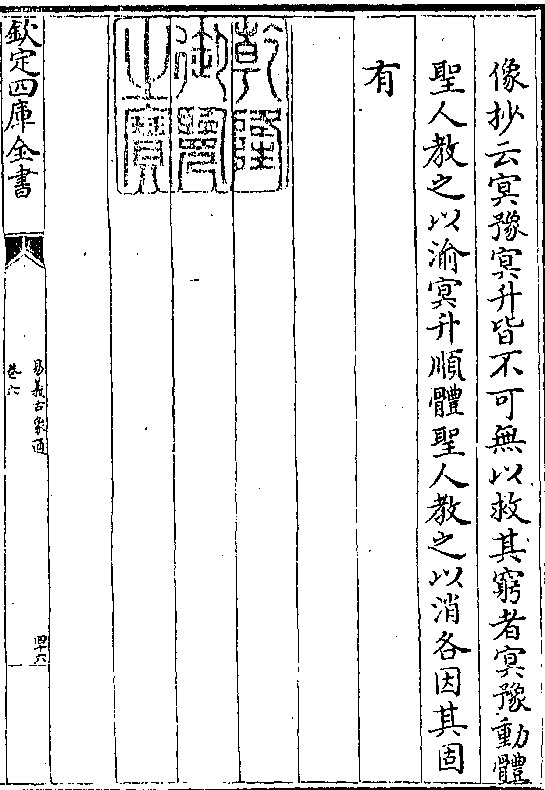 像抄云冥豫冥升皆不可無以救其窮者冥豫動體
聖人教之以渝冥升順體聖人教之以消各因其固
有
乾隆御覽之寶
欽定四庫全書
易義古象通
卷六
四十六